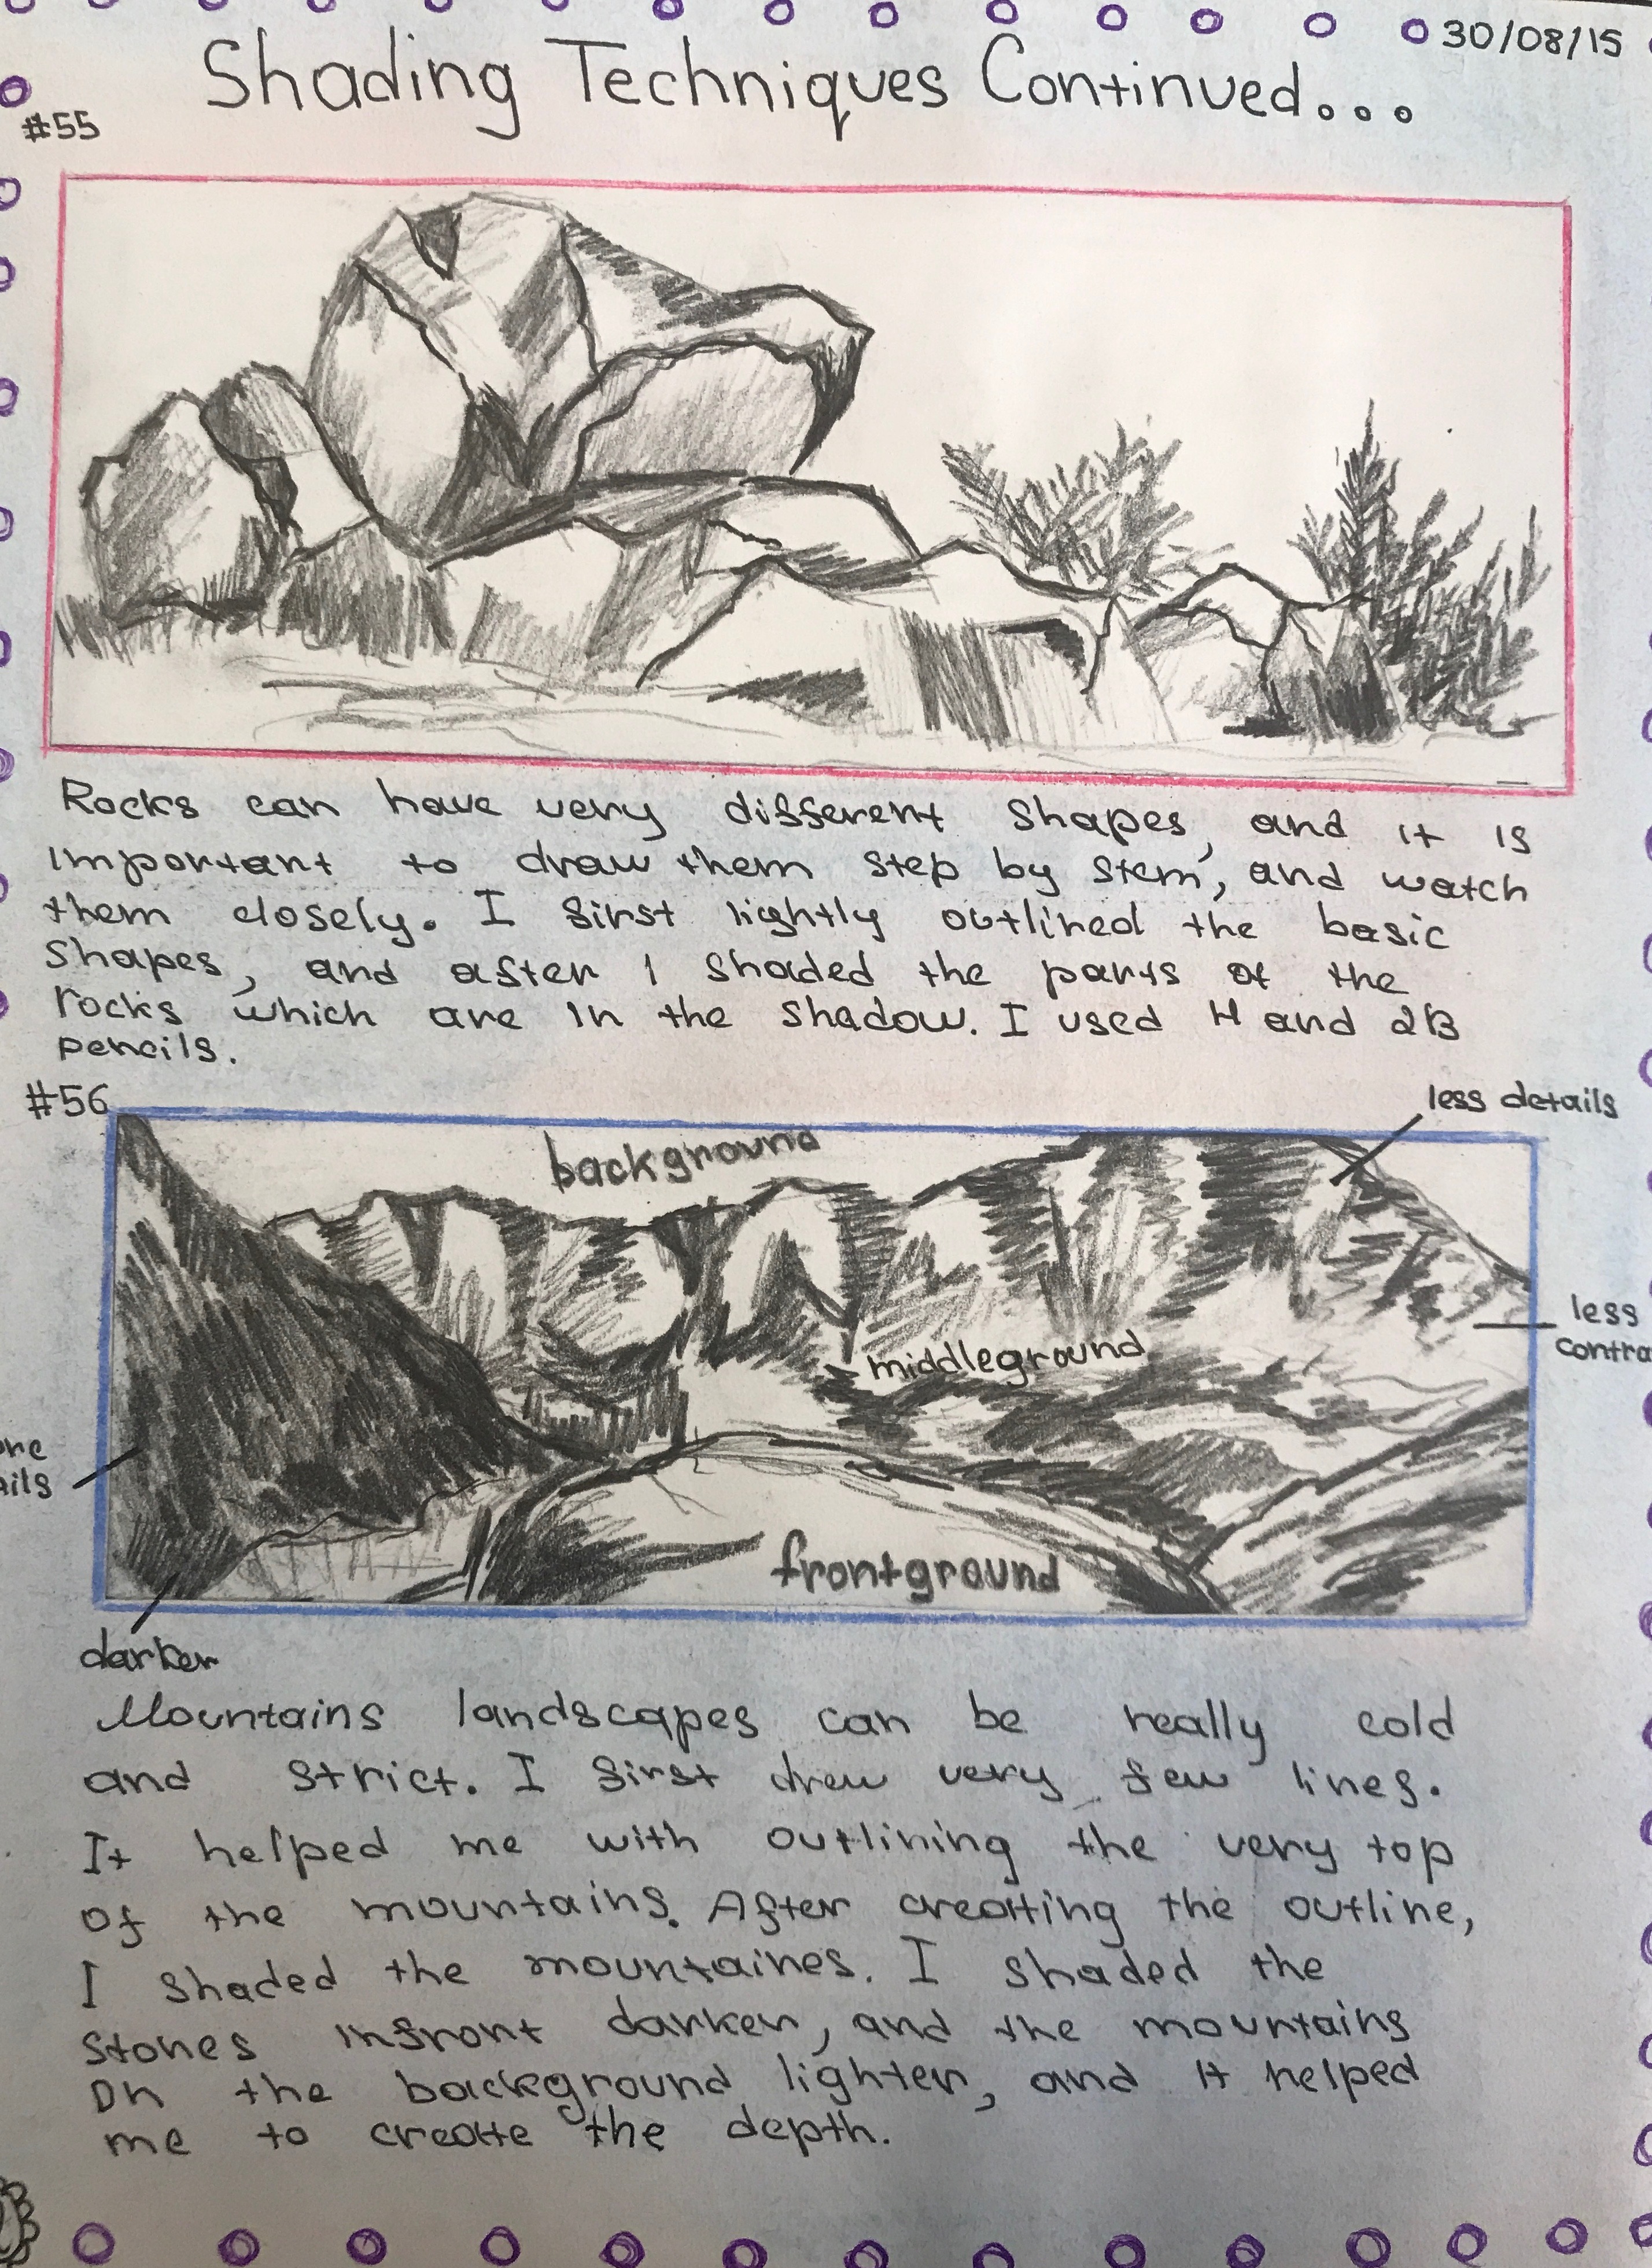 30/08/15
Shading Techniques Continued...
#55
Rocks can have very different shapes, and it is
important to draw them step by stem, and watch
them closely. I first lightly outlined the basic
shapes, and after I shaded the parts of the
rocks which are in the shadow. I used H and 2B
pencils.
#56
less details
background
less
contra
middleground
ails
frontground
darker
Mountains landscapes can be really cold
and strict. I first drew very few lines.
It helped me with outlining the very top
of the mountains. After creating the outline,
I shaded the mountaines. I shaded the
stones infront darker, and the mountains
on the background lighter, and it helped
me to create the depth.